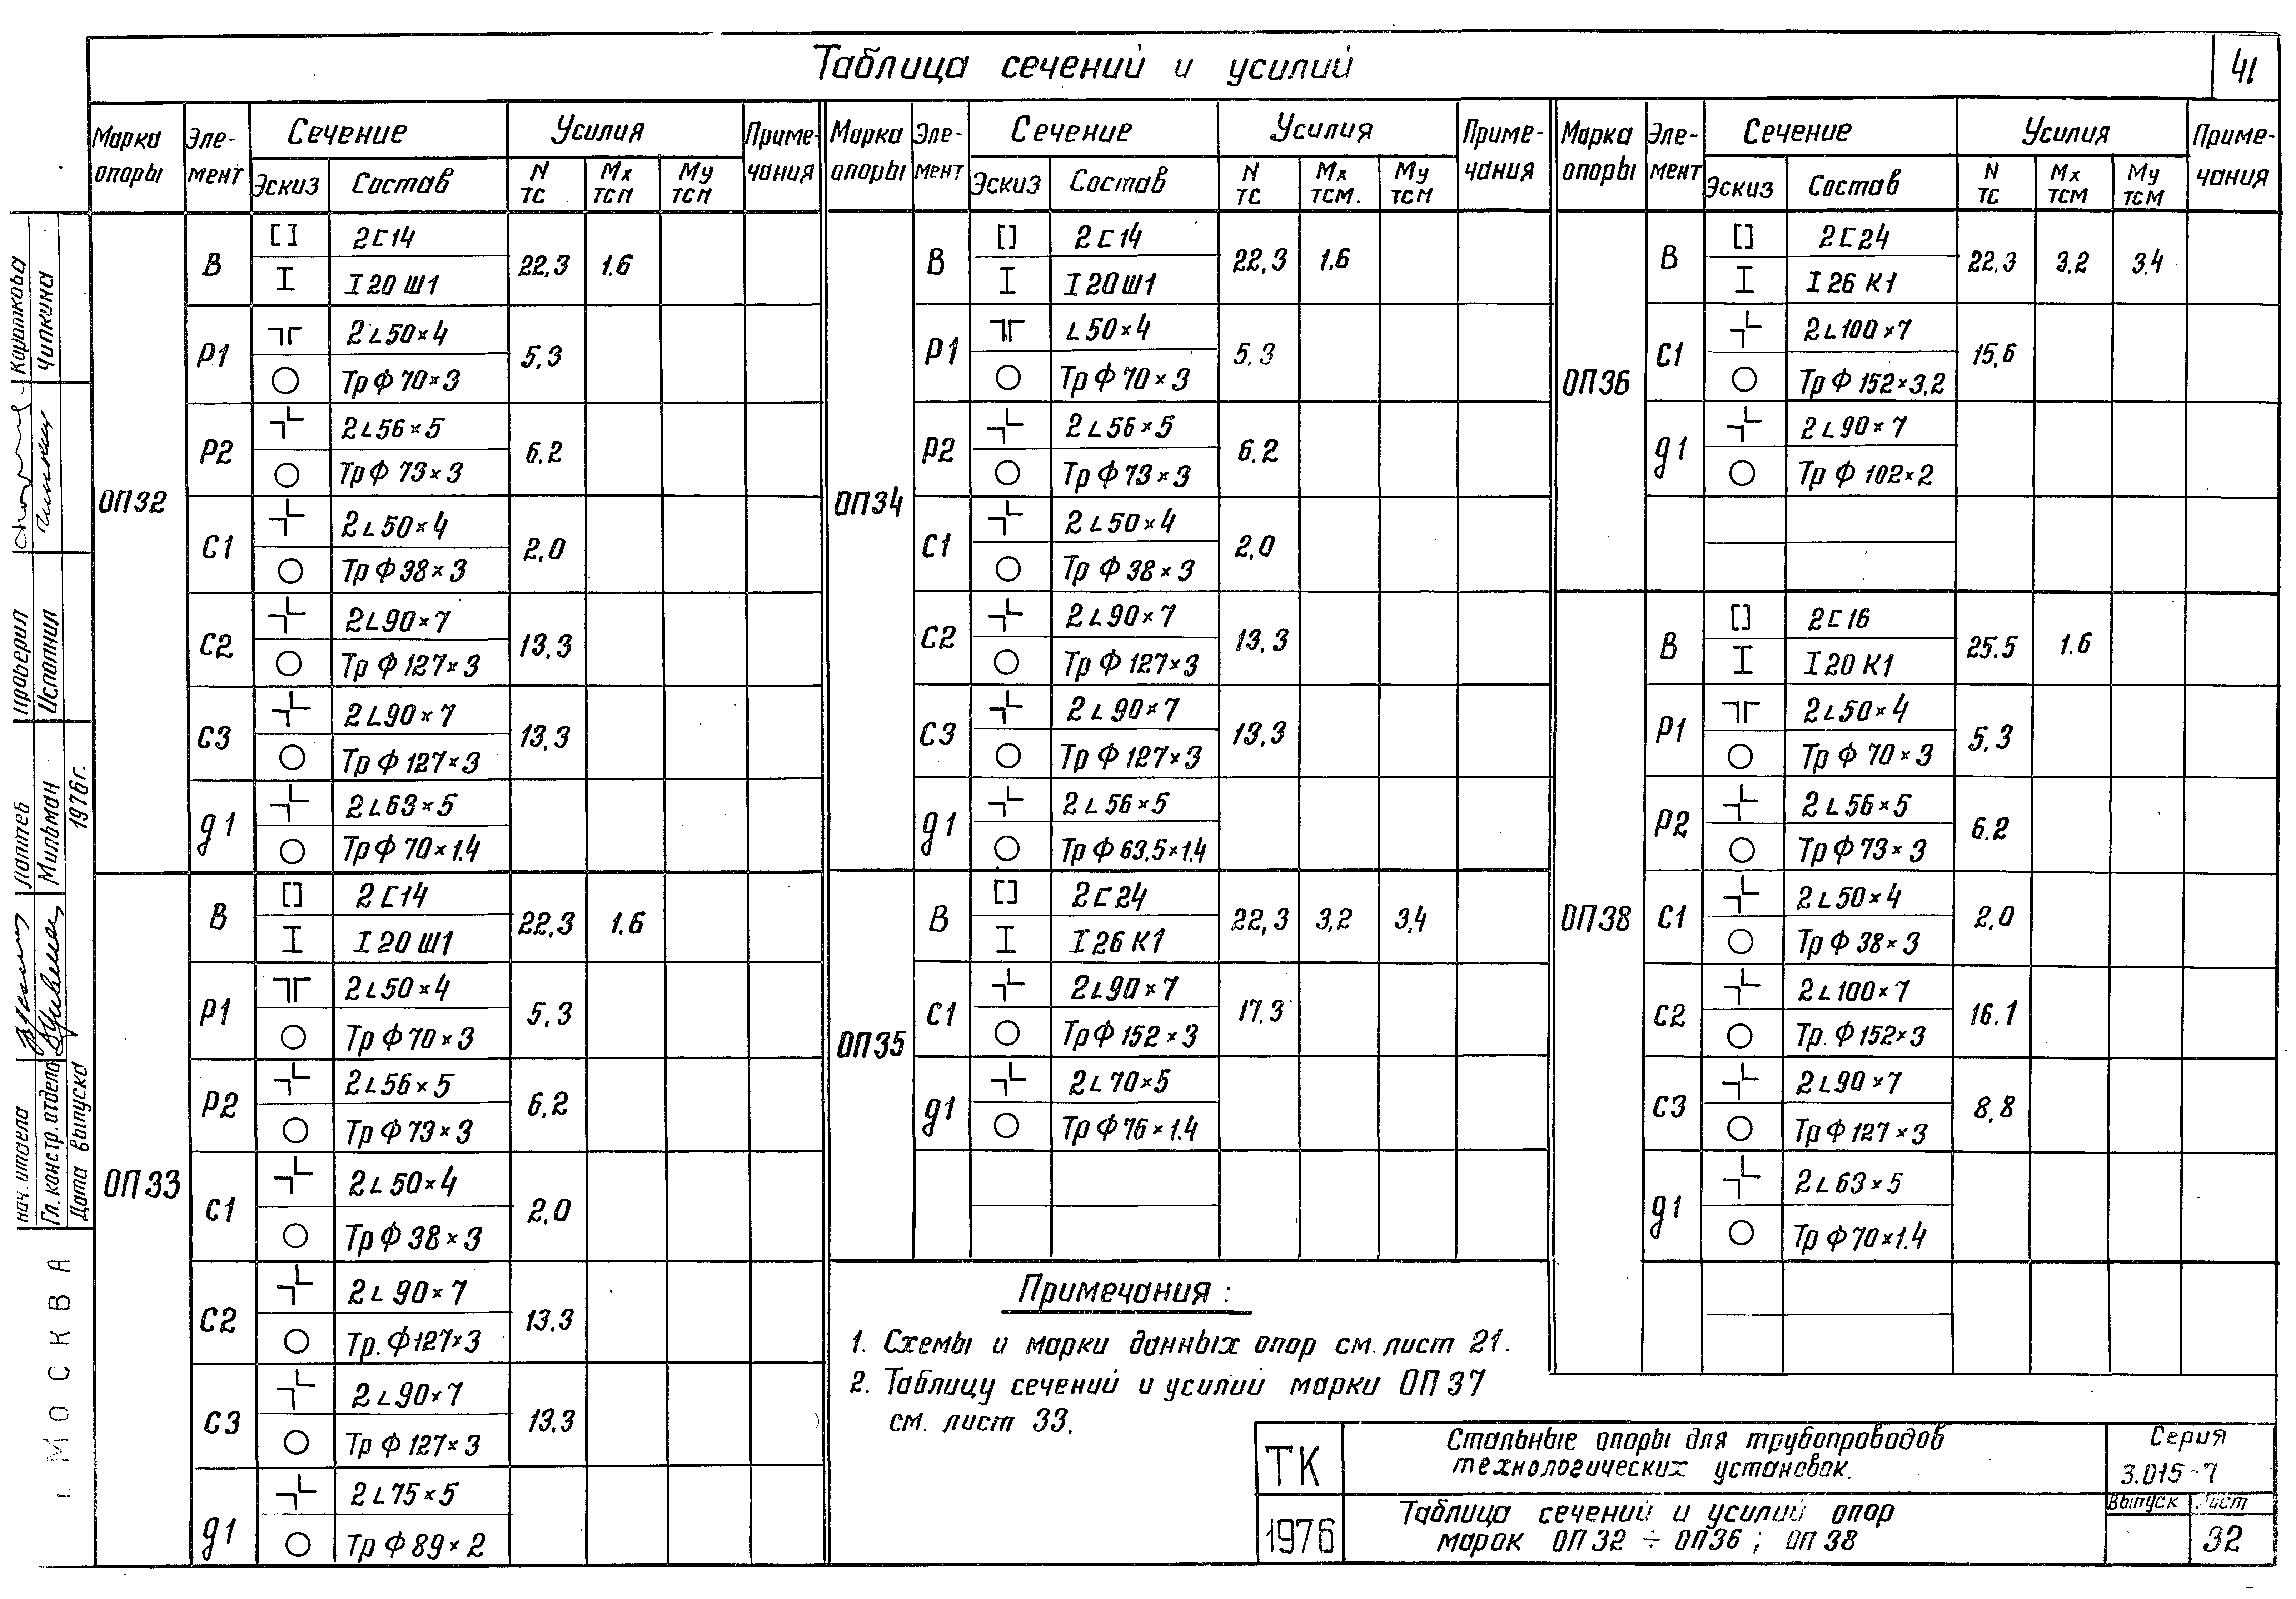 Таблица сечений и усилий
41
Марка опоры | Эле-мент | Сечение | Усилия | Приме-чания
Эскиз | Состав | N тс | Mx тсм | My тсм
ОП32
В | 2[14 | 22,3 | 1.6
I20Ш1
Р1 | 2∟50×4 | 5,3
Тр Ф 70×3
Р2 | 2∟56×5 | 6.2
Тр Ф 73×3
С1 | 2∟50×4 | 2,0
Тр Ф 38×3
С2 | 2∟90×7 | 13.3
Тр Ф 127×3
С3 | 2∟90×7 | 13,3
Тр Ф 127×3
д1 | 2∟63×5
Тр Ф 70×1.4
ОП33
В | 2[14 | 22,3 | 1.6
I20Ш1
Р1 | 2∟50×4 | 5,3
Тр Ф 70×3
Р2 | 2∟56×5 | 6,2
Тр Ф 73×3
С1 | 2∟50×4 | 2,0
Тр Ф 38×3
С2 | 2∟90×7 | 13.3
Тр. Ф 127×3
С3 | 2∟90×7 | 13.3
Тр Ф 127×3
д1 | 2∟75×5
Тр Ф 89×2
Марка опоры | Эле-мент | Сечение | Усилия | Приме-чания
Эскиз | Состав | N тс | Mx тсм. | My тсм
ОП34
В | 2[14 | 22,3 | 1.6
I20Ш1
Р1 | ∟50×4 | 5,3
Тр Ф 70×3
Р2 | 2∟56×5 | 6.2
Тр Ф 73×3
С1 | 2∟50×4 | 2,0
Тр Ф 38×3
С2 | 2∟90×7 | 13.3
Тр Ф 127×3
С3 | 2∟90×7 | 13,3
Тр Ф 127×3
д1 | 2∟56×5
Тр Ф 63,5×1.4
ОП35
В | 2[24 | 22,3 | 3,2 | 3,4
I26К1
С1 | 2∟90×7 | 17,3
Тр Ф 152×3
д1 | 2∟70×5
Тр Ф 76×1.4
Марка опоры | Эле-мент | Сечение | Усилия | Приме-чания
Эскиз | Состав | N тс | Mx тсм | My тсм
ОП36
В | 2[24 | 22,3 | 3,2 | 3,4
I26К1
С1 | 2∟100×7 | 15,6
Тр Ф 152×3,2
д1 | 2∟90×7
Тр Ф 102×2
ОП38
В | 2[16 | 25.5 | 1.6
I20К1
Р1 | 2∟50×4 | 5,3
Тр Ф 70×3
Р2 | 2∟56×5 | 6.2
Тр Ф 73×3
С1 | 2∟50×4 | 2,0
Тр Ф 38×3
С2 | 2∟100×7 | 16.1
Тр. Ф 152×3
С3 | 2∟90×7 | 8,8
Тр Ф 127×3
д1 | 2∟63×5
Тр Ф 70×1.4
Примечания:
1. Схемы и марки данных опор см. лист 21.
2. Таблицу сечений и усилий марки ОП37
см. лист 33.
ТК
1976
Стальные опоры для трубопроводов
технологических установок.
Таблица сечений и усилий опор
марок ОП32 ÷ ОП36; ОП38
Серия
3.015-7
Выпуск
Лист
32
Проверил
Исполнил
Чипкина
Лаптев
Мильман
Гл. констр. отдела
Дата выпуска
1976г.
МОСКВА